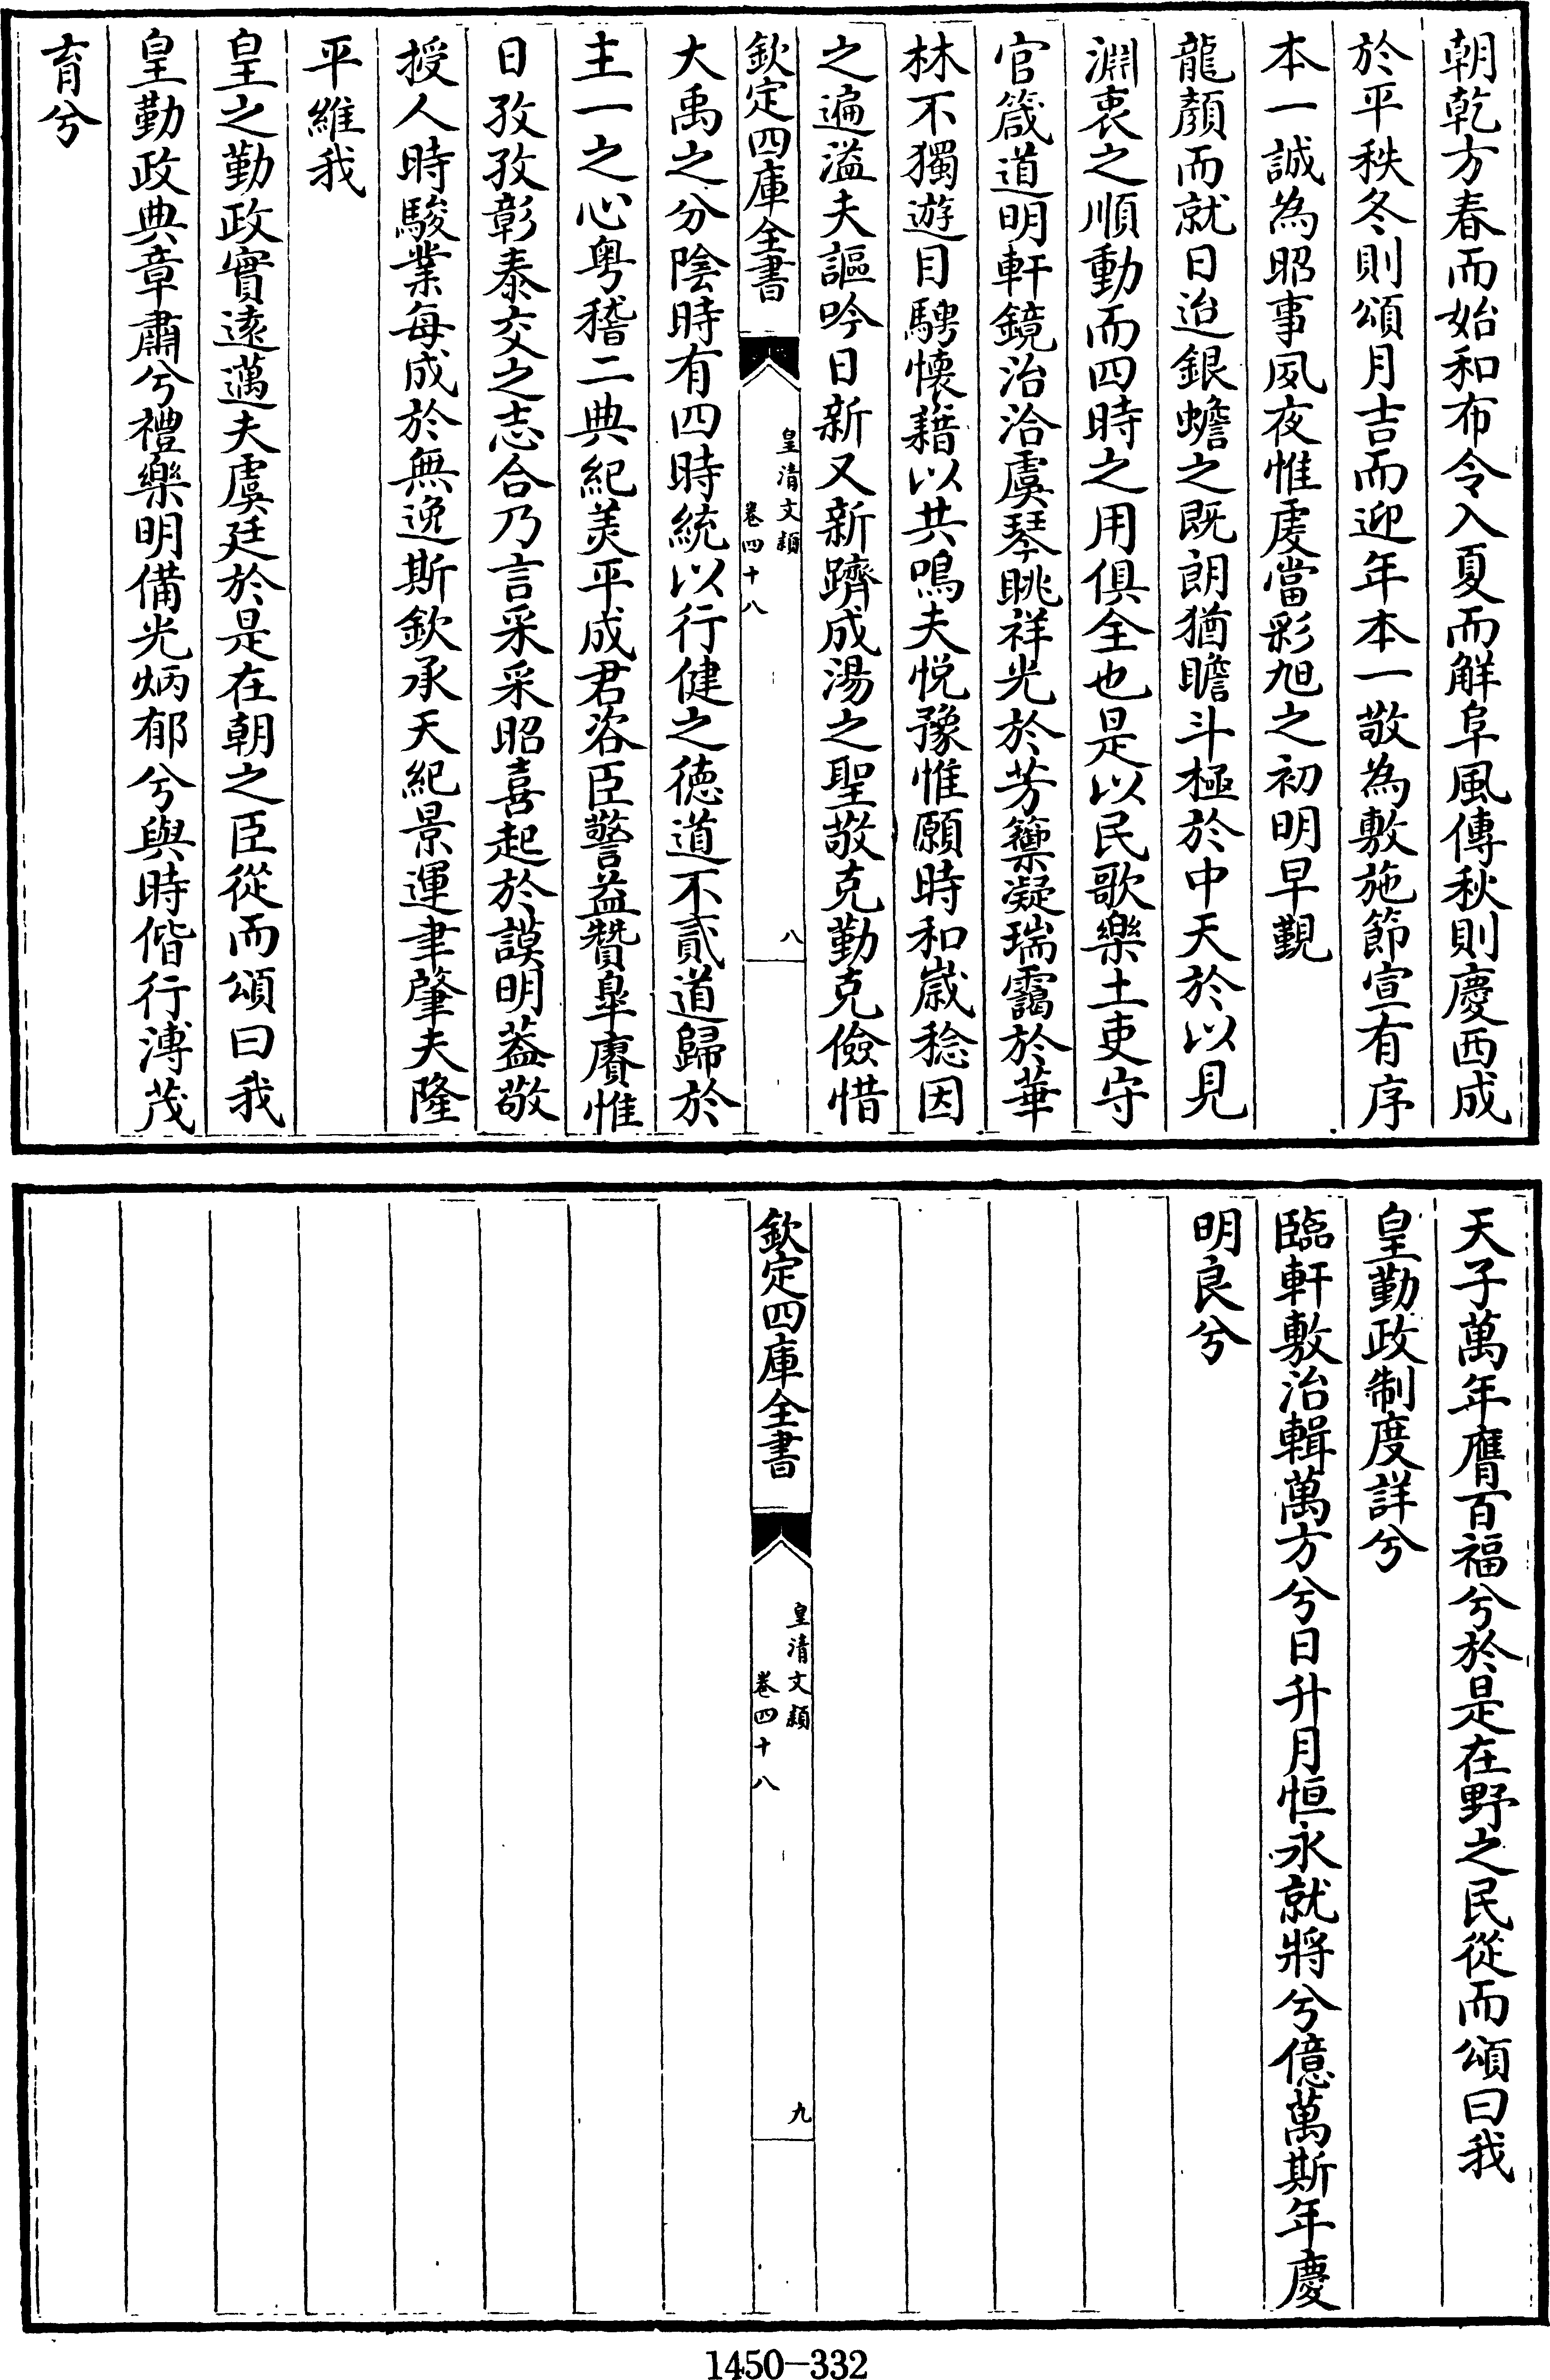 朝乾方春而始和布令入夏而解阜風傳秋則慶西成
於平秩冬則頌月吉而迎年本一敬為敷施節宣有序
本一誠為昭事夙夜惟虔當彩旭之初明早覲
龍顏而就日迨銀蟾之既朗猶瞻斗極於中天於以見
淵衷之順動而四時之用俱全也是以民歌樂土吏守
官箴道明軒鏡治洽虞琴眺祥光於芳籞凝瑞靄於華
林不獨遊目騁懐藉以共鳴夫悦豫惟願時和歲稔因
之遍溢夫謳吟日新又新躋成湯之聖敬克勤克儉惜
欽定四庫全書
皇清文穎
卷四十八
八
大禹之分陰時有四時統以行健之徳道不貳道歸於
主一之心粤稽二典紀美平成君咨臣警益贊臯賡惟
日孜孜彰泰交之志合乃言采采昭喜起於謨明葢敬
授人時駿業每成於無逸斯欽承天紀景運聿肇夫隆
平維我
皇之勤政實遠邁夫虞廷於是在朝之臣從而頌曰我
皇勤政典章肅兮禮樂明備光炳郁兮與時偕行溥茂
育兮
天子萬年膺百福兮於是在野之民從而頌曰我
皇勤政制度詳兮
臨軒敷治輯萬方兮日升月恒永就將兮億萬斯年慶
明良兮
欽定四庫全書
皇清文穎
卷四十八
九
1450-332